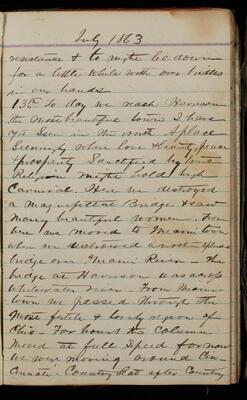 July 1863
resistance & to night lie down
for a little while with our bridles
in our hands
13th To day we reach Harrison
the most beautiful town I have
yet seen in the north A place
Seemingly where love & beauty, peace
& prosperity Sanctified by true
Religion might hold high
Carnival. Here we destroyed
a magnificent Bridge & saw
many beautiful women. From
here we moved to Miamitown
where we destroyed another splendid
bridge over Miami River — The
bridge at Harrison was across
Whitewater river. From Miami
town we passed through the
most fertile & lovely region of
Ohio. For hours the column
moved at full Speed for now
we were moving around Cin-
cinnati. Country Seat after Country